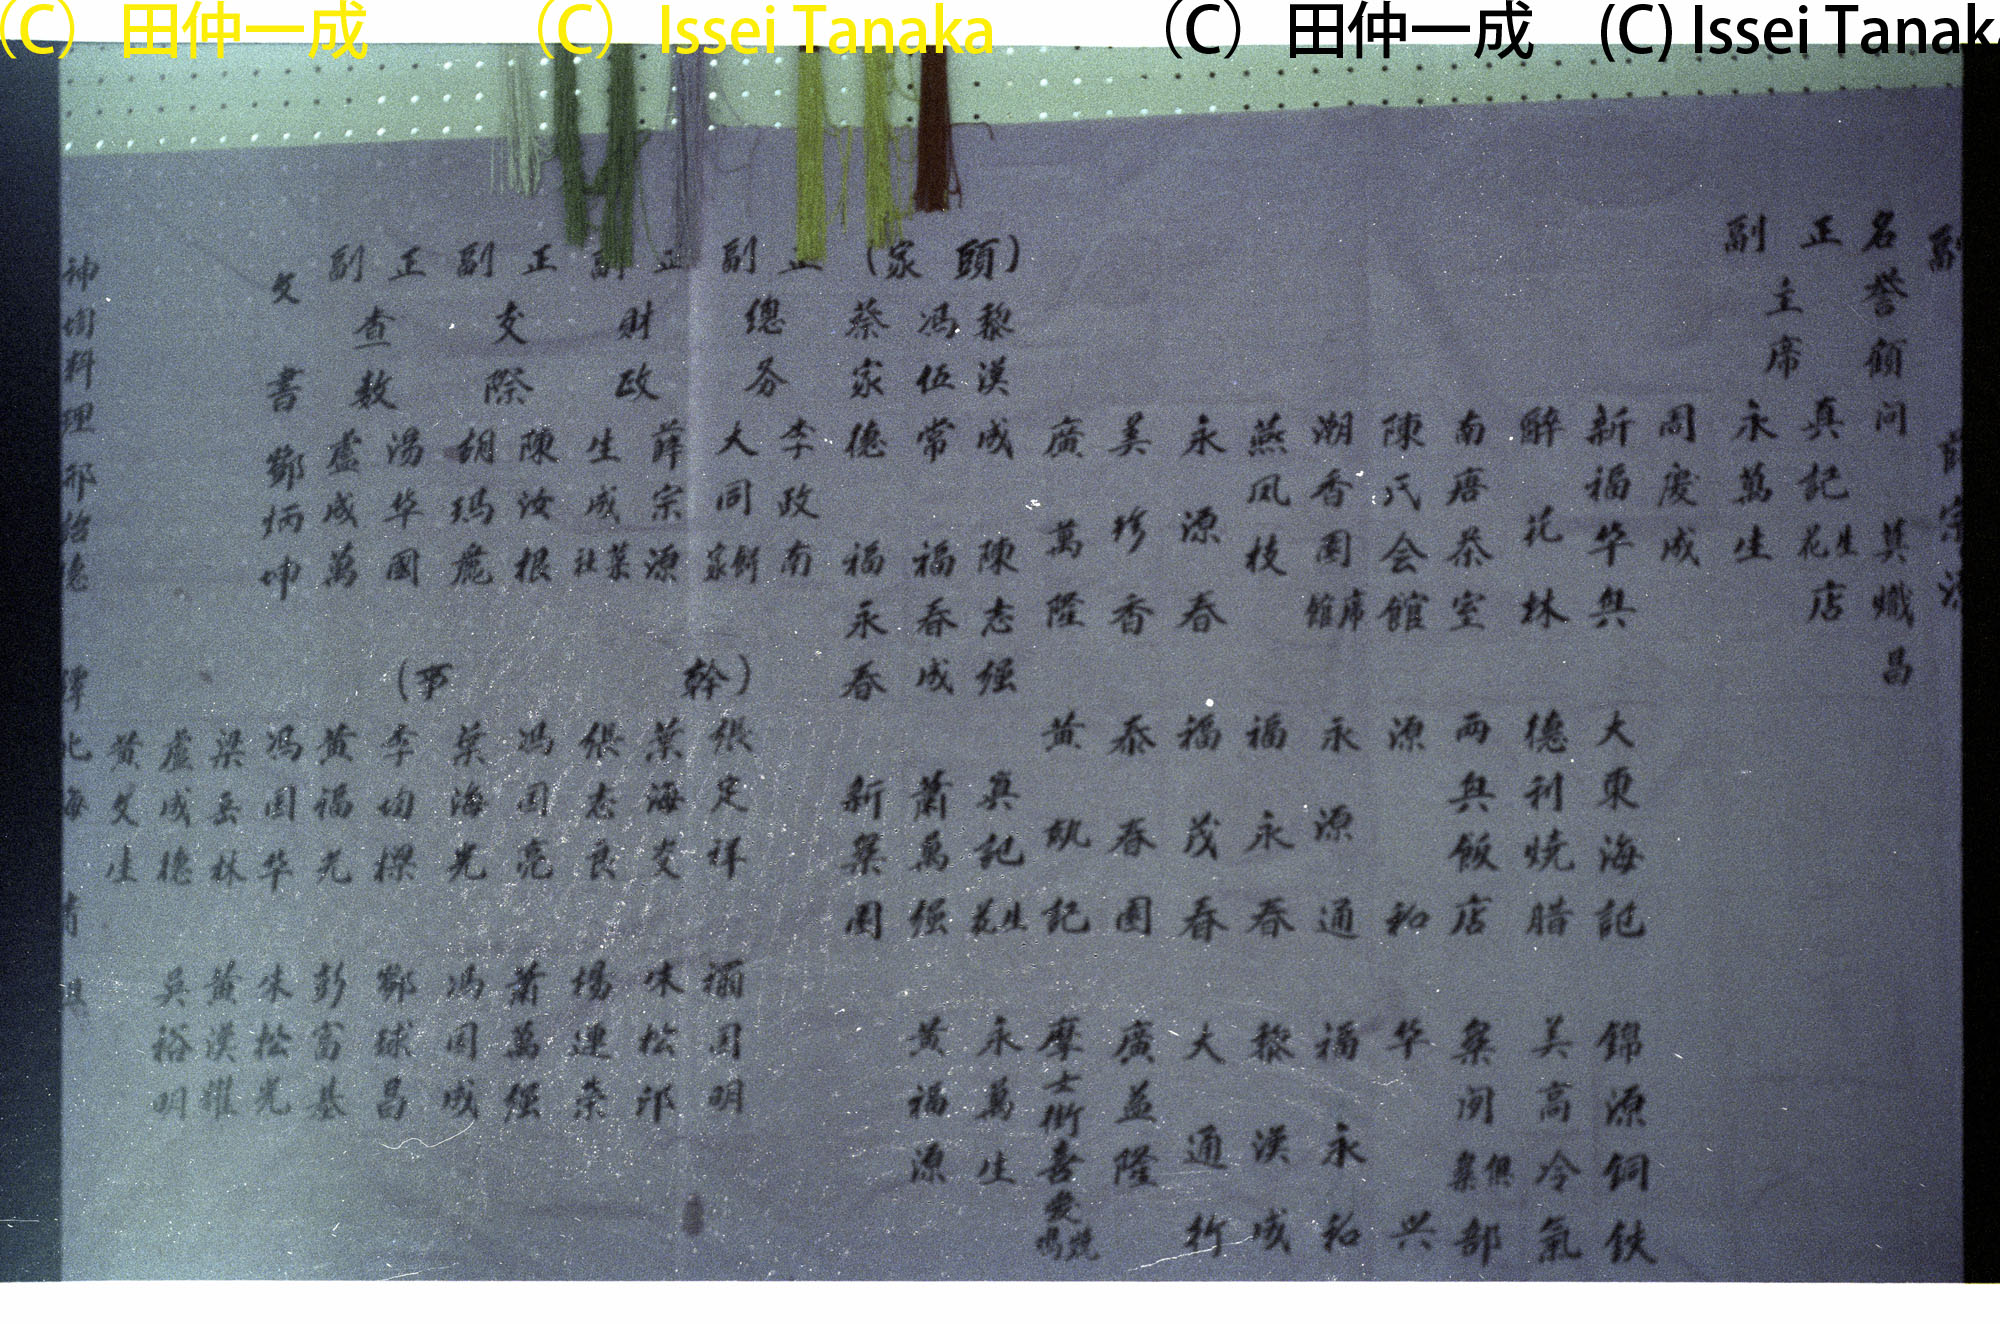 (C) 田仲一成 (C) Issei Tanaka (C) 田仲一成 (C) Issei Tanaka
副 薛宗源
名誉顧問 熾昌
正 副 主席
真記花生店
永萬生
周慶成
新福华興 大東海記 錦源銅鉄
醉花林 德利燒腊 美高冷氣
南唐茶室 两興飯店 閑樂俱部
陳氏会館 源和 华兴
潮香園席館 永源通 福永和
燕凤枝 福永春 黎漢成
永源春 福茂春 大通行
美珍香 泰春園 廣益隆
廣萬隆 黄 記 摩士街喜
(頭家)
黎漢成 陳志强 真記花生 永萬生
馮伍常 福春成 蕭萬强 黄福源
蔡家德 福永春 新 園
正 副 總务 李政南 大同餅家
正 副 財政 薛宗源 生成菜社
正 副 交際 陳汝根 胡瑪麗
正 副 查数 湯华國 盧成萬
文書 鄭炳坤
(幹事)
張定祥 國明
葉海交 松
張志良 楊連榮
馮国亮 蕭萬强
葉海光 馮国成
李均樑 鄭球昌
黄福光 彭富基
馮国华 朱松光
梁岳林 黄漢權
盧成德 吳裕明
黄文生
神 料理